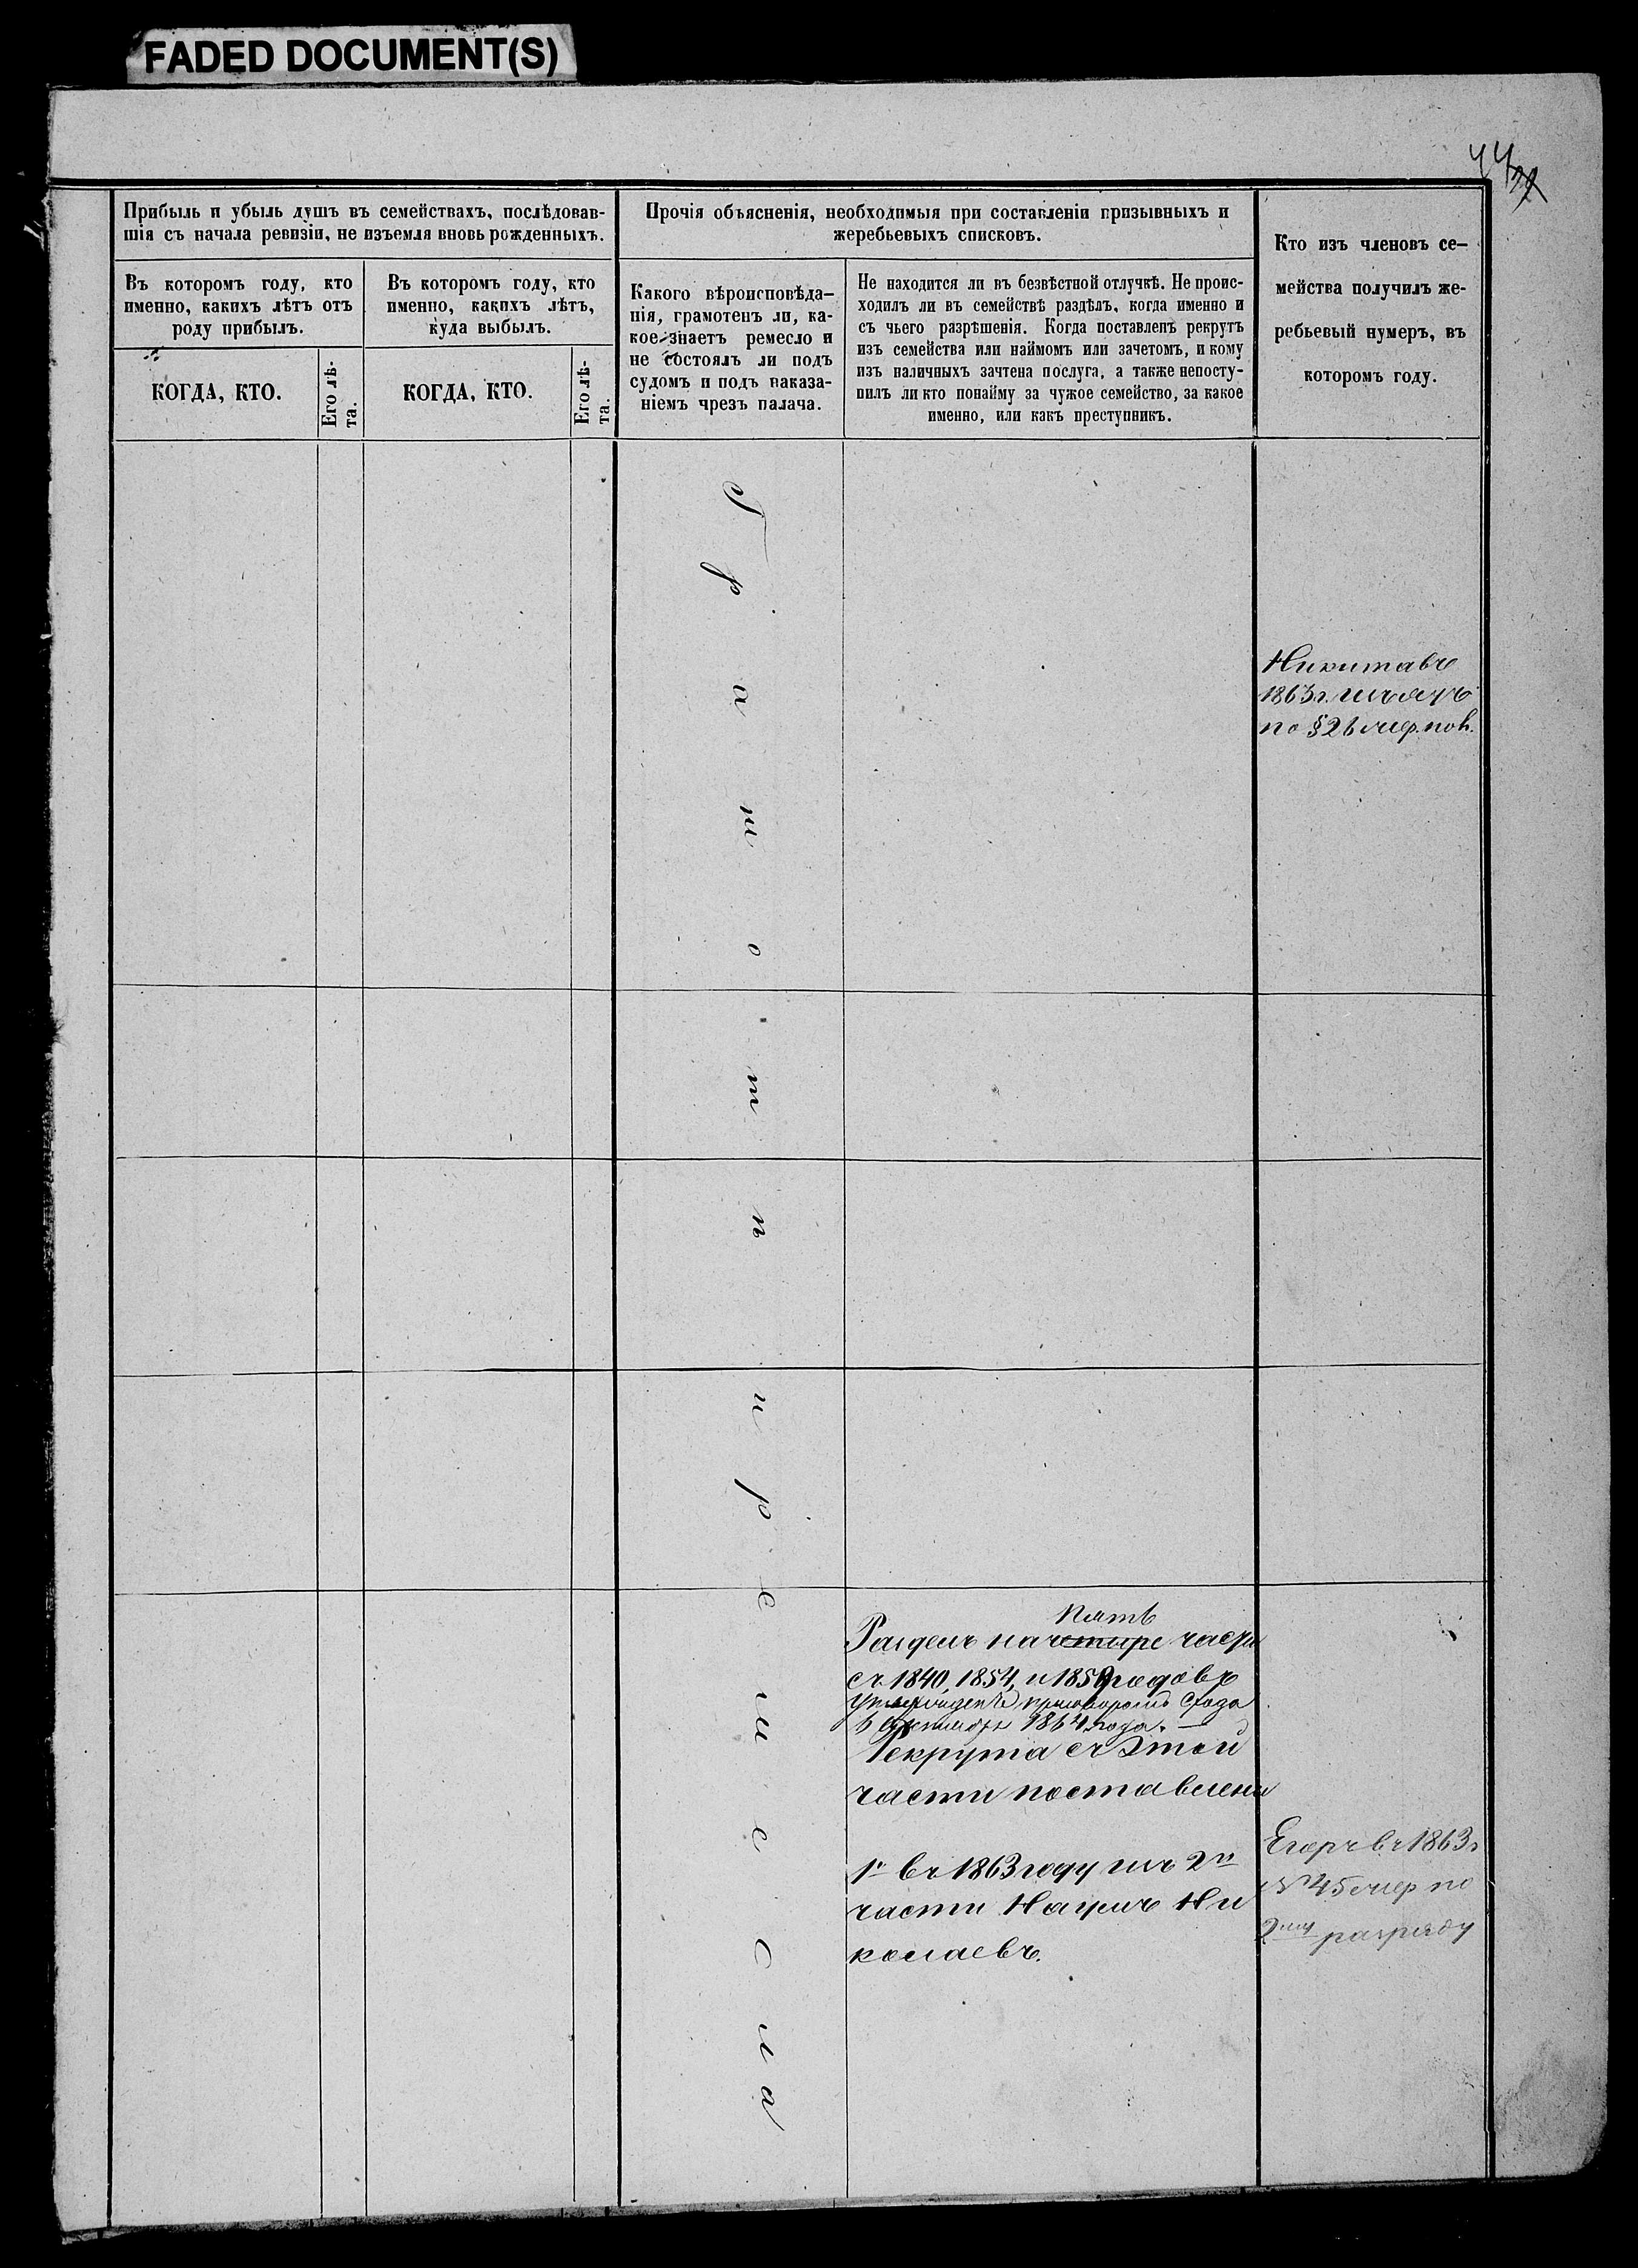 FADED DOCUMENT(S)
44
Прибыль и убыль душъ въ семействахъ, послѣдовав-
шія съ начала ревизіи, не изъемля вновь рожденныхъ.
Въ которомъ году, кто
именно, какихъ лѣтъ отъ
роду прибылъ.
Въ которомъ году, кто
именно, какихъ лѣтъ,
куда выбылъ.
КОГДА, КТО.
Его лѣ-
та.
КОГДА, КТО.
Его лѣ-
та.
Прочія объясненія, необходимыя при составленіи призывныхъ и
жеребьевыхъ списковъ.
Какого вѣроисповѣда-
нія, грамотенъ ли, ка-
кое знаетъ ремесло и
не состоялъ ли подъ
судомъ и подъ наказа-
ніемъ чрезъ палача.
Не находится ли въ безвѣстной отлучкѣ. Не проис-
ходилъ ли въ семействѣ раздѣлъ, когда именно и
съ чьего разрѣшенія. Когда поставленъ рекрутъ
изъ семейства или наймомъ или зачетомъ, и кому
изъ наличныхъ зачтена послуга, а также непосту-
пилъ ли кто понайму за чужое семейство, за какое
именно, или какъ преступникъ.
Кто изъ членовъ се-
мейства получилъ же-
ребьевый нумеръ, въ
которомъ году.
Никита въ
1863 г.
по § 26
пять
Раздѣлъ на четыре части
съ 1840, 1854, и 1859 годовъ
приговоромъ
1864 года.
Рекрута съ этой
части поставлены
1й въ 1863 году изъ 2й
части Наумъ Ни
колаевъ.
Егоръ въ 1863 г
№ 45 по
2му разряду